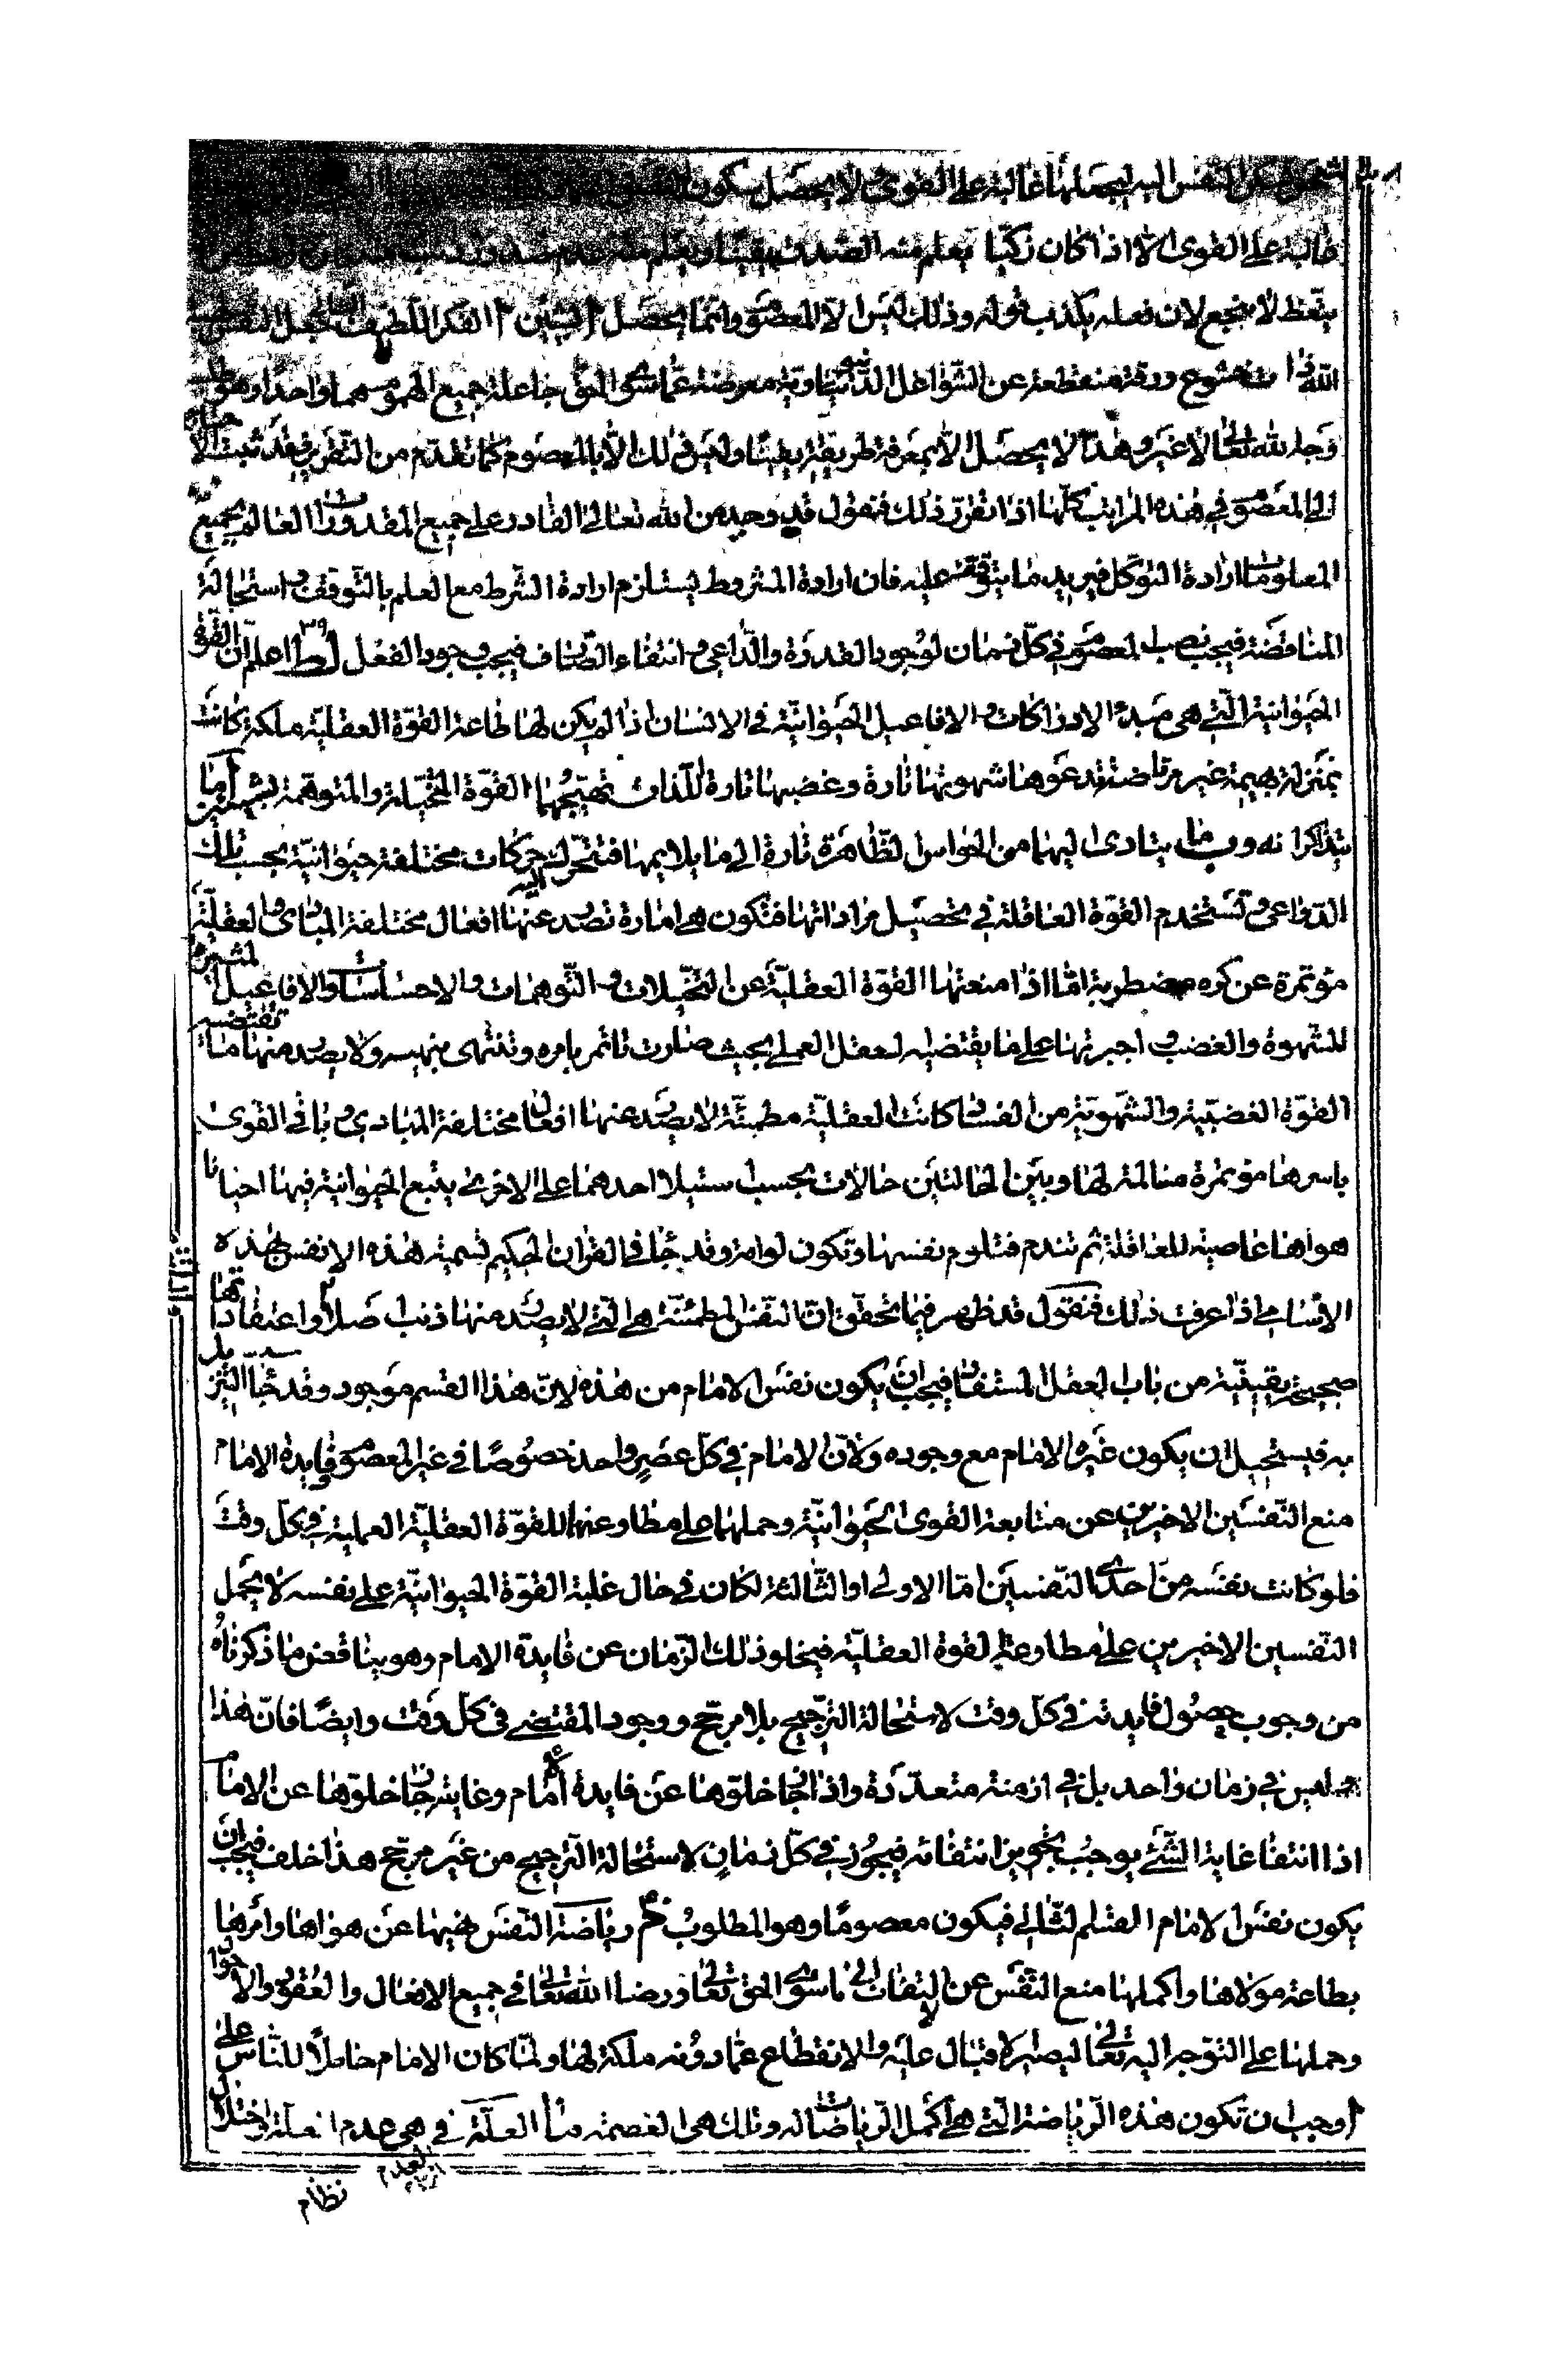 النفس اليه ليجعلها غالبة على القوى لا يحصل سكون
غالبة على القوى الا اذا كان زكيا يعلم منه الصدق يقينا ويعلم منه عدم
يتعظ لا ينجع لان فعله يكذب قوله وذلك ليس الا المعصوم وانما يحصل الفكر اللطيف يجعل النفس
الله ذات خشوع ورقة منقطعة عن الشواغل الدنياوية معرضة عما سوى الحق جاعلة جميع الهموم هما واحدا وهو طلب
وجه الله تعالى لا غير وهذا لا يحصل الا بمعرفة طريقة يقينا وليس ذلك الا بالمعصوم كما تقدم من التقرير فقد ثبت الاحتياج
الى المعصوم في هذه المراتب كلها اذا تقرر ذلك فنقول قد وجد من الله تعالى القادر على جميع المقدورات العالم بجميع
المعلومات ارادة التوكل فيريد ما يتوقف عليه فان ارادة المشروط يستلزم ارادة الشرط مع العلم بالتوقف واستحالة
المناقضة فيجب نصب المعصوم في كل زمان لوجود القدرة والداعي وانتفاء الصارف فيجب وجود الفعل لط اعلم ان القوة
الحيوانية التي هي مبدء الادراكات والافاعيل الحيوانية في الانسان اذا لم يكن لها طاعة القوة العقلية ملكة كانت
بمنزلة بهيمة غير مرتاضة تدعوها شهوتها تارة وغضبها تارة اللذان تهيجهما القوة المتخيلة والمتوهمة بسبب ما
يتذكرانه وبما يتادى اليهما من الحواس الظاهرة تارة الى ما يلايمها فتتحرك حركات مختلفة حيوانية بحسب تلك
الدواعي وتستخدم القوة العاقلة في تحصيل مراداتها فتكون هي امارة تصدر عنها افعال مختلفة المبادى والعقلية
مؤتمرة عن كره مضطربة اما اذا منعتها القوة العقلية عن التخيلات والتوهمات والاحساسات والافاعيل المثيرة
للشهوة والغضب واجبرتها على ما يقتضيه العقل العملي بحيث صارت تاتمر بامره وتنتهى بنهيه ولا يصدر منها ما تقتضيه
القوة الغضبية والشهوية من الفساد كانت العقلية مطمئنة لا يصدر عنها افعال مختلفة المبادي وباقي القوى
باسرها مؤتمرة مسالمة لها وبين الحالتين حالات بحسب استيلا احدهما على الاخرى يتبع الحيوانية فيها احيانا
هواها عاصية للعاقلة ثم تندم فتلوم نفسها وتكون لوامة وقد جا في القران الحكيم تسمية هذه الانفس بهذه
الاسامي اذا عرفت ذلك فنقول قد ظهر فيما تحقق ان النفس المطمئنة هي التي لا يصدر منها ذنب اصلا واعتقاداتها
صحيحة يقينية من باب العقل المستفاد فيجب ان يكون نفس الامام من هذه لان هذا القسم موجود وقد جا التنزيل
به فيستحيل ان يكون غيره الامام مع وجوده ولان الامام في كل عصر واحد خصوصا في غير المعصوم وفايدة الامام
منع النفسين الاخيرين عن متابعة القوى الحيوانية وحملها على مطاوعتها للقوة العقلية العملية في كل وقت
فلو كانت نفسه من احدى النفسين اما الاولى او الثالثة لكان في حال غلبة القوة الحيوانية على نفسه لا يحمل
النفسين الاخيرين على مطاوعة القوة العقلية فيخلو ذلك الزمان عن فايدة الامام وهو يناقض ما ذكرناه
من وجوب حصول فايدته في كل وقت لاستحالة الترجيح بلا مرجح ووجود المقتضى في كل وقت وايضا فان هذا
ليس في زمان واحد بل في ازمنة متعددة واذا جاز خلوها عن فايدة الامام وغايته جاز خلوها عن الامام
اذا انتفا غاية الشئ يوجب تجويز انتفائه فيجوز في كل زمان لاستحالة الترجيح من غير مرجح هذا خلف فيجب ان
يكون نفس الامام القسم الثاني فيكون معصوما وهو المطلوب م رياضة النفس نهيها عن هواها وامرها
بطاعة مولاها واكملها منع النفس عن الالتفات الى ما سوى الحق تعالى ورضا الله تعالى في جميع الافعال والعقود والاحوال
وحملها على التوجه اليه تعالى ليصير الاقبال عليه والانقطاع عما دونه ملكة لها ولما كان الامام حاملا للناس على
وجب ان تكون هذه الرياضة التي هي اكمل الرياضات له وتلك هي العصمة منا العلة في هي عدم العلة
العدم
نظام